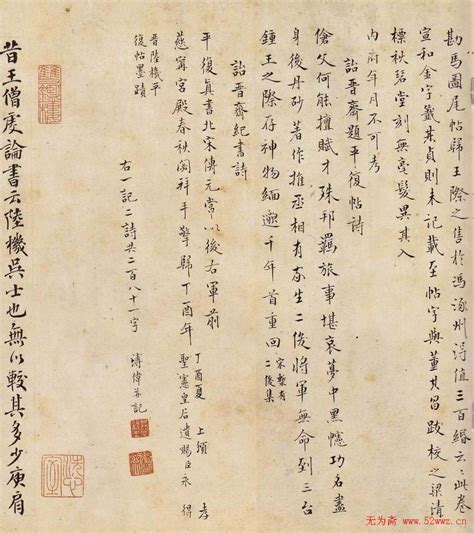 勘馬圖尾帖歸王際之售於馮涿州得值三百緡云云此卷
宣和金字籤其貞則未記載至帖字與董其昌跋校之梁清
標秋碧堂刻無毫髮異其入
內府年月不可考
詒晉齋題平復帖詩
傖父何能擅賦才殊邦羈旅事堪哀夢中黑幰功名盡
身後丹砂著作推丞相有生二俊將軍無命到三台
鍾王之際存神物緬邈千年首重回
宋槧有
二俊集
詒晉齋紀書詩
平復真書北宋傳元常以後右軍前
慈寧宮殿春秋閟手擎歸丁酉年
丁酉夏上頒孝
聖憲皇后遺賜臣永得
晉陸機平
復帖墨蹟
右一記二詩共二百八十一字 溥偉并記
昔王僧虔論書云陸機吳士也無以較其多少庾肩
无为斋 www.52wwz.cn